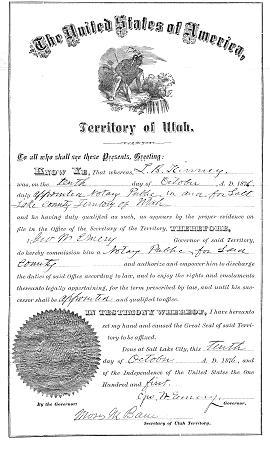 The United States of America,
Territory of Utah.
To all who shall see these Presents, Greeting:
KNOW YE, That whereas L. B. Kinney
was, on the tenth day of October A. D. 1876,
duly appointed Notary Public in and for Salt
Lake County Territory of Utah
and he having duly qualified as such, as appears by the proper evidence on
file in the Office of the Secretary of the Territory, THEREFORE,
I, Geo W. Emery Governor of said Territory,
do hereby commission him a Notary Public for said
County and authorize and empower him to discharge
the duties of said Office according to law, and to enjoy the rights and emoluments
thereunto legally appertaining, for the term prescribed by law, and until his suc-
cessor shall be appointed and qualified to office.
IN TESTIMONY WHEREOF, I have hereunto
set my hand and caused the Great Seal of said Terri-
tory to be affixed.
Done at Salt Lake City, this tenth
day of October A. D. 1876, and
of the Independence of the United States the One
Hundred and first.
Geo. W. Emery
Governor.
By the Governor:
Moses M. Bane
Secretary of Utah Territory.